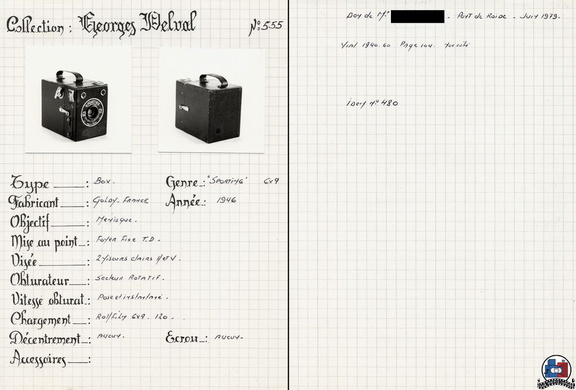 Collection : Georges Delval Nº 555
Type : Box. Genre : "Sporting" 6x9
Fabricant : Goldy. France Année : 1946
Objectif : Ménisque.
Mise au point : Foyer Fixe T.D.
Visée : 2 Viseurs clairs H et V.
Obturateur : Secteur Rotatif.
Vitesse obturat. : Pose et instantané.
Chargement : Rollfilm 6x9. 120.
Décentrement : aucun. Ecrou : aucun.
Accessoires :
Don de Mr . Pont de Roide . Juin 1979.
Vial 1940.60 Page 104.
idem Nº 480